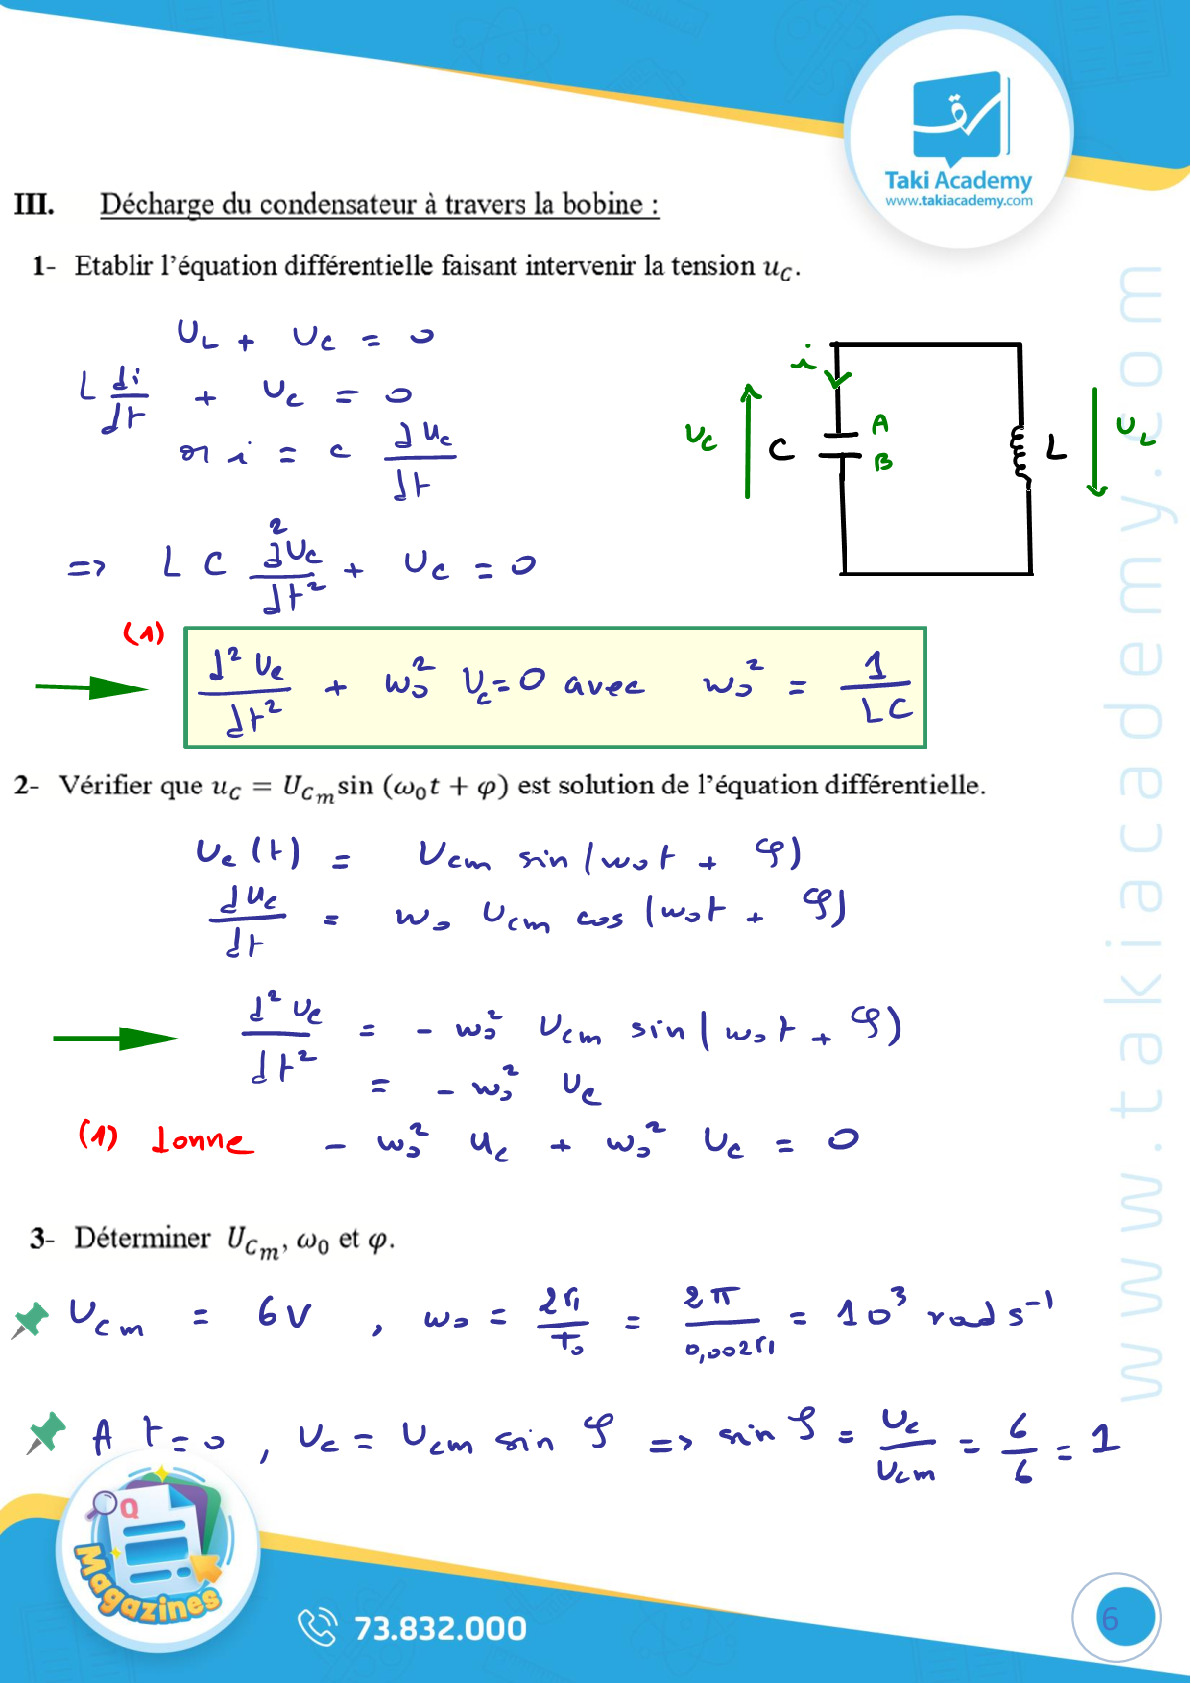 Taki Academy
www.takiacademy.com
III. Décharge du condensateur à travers la bobine :
1- Etablir l'équation différentielle faisant intervenir la tension u_C.
U_L + U_C = 0
L di/dt + U_C = 0
or i = C dU_C/dt
=> LC d²U_C/dt² + U_C = 0
i
U_C
C
A
B
L
U_L
(1)
d²U_C/dt² + ω₀² U_C = 0 avec ω₀² = 1/LC
2- Vérifier que u_C = U_Cm sin (ω₀t + φ) est solution de l'équation différentielle.
U_C(t) = U_Cm sin(ω₀t + φ)
dU_C/dt = ω₀ U_Cm cos(ω₀t + φ)
d²U_C/dt² = - ω₀² U_Cm sin(ω₀t + φ)
= - ω₀² U_C
(1) donne - ω₀² U_C + ω₀² U_C = 0
3- Déterminer U_Cm, ω₀ et φ.
U_Cm = 6V , ω₀ = 2π/T₀ = 2π/0,002π = 10³ rad s⁻¹
A t=0 , U_C = U_Cm sin φ => sin φ = U_C/U_Cm = 6/6 = 1
www.takiacademy.com
Q
Magazines
73.832.000
6